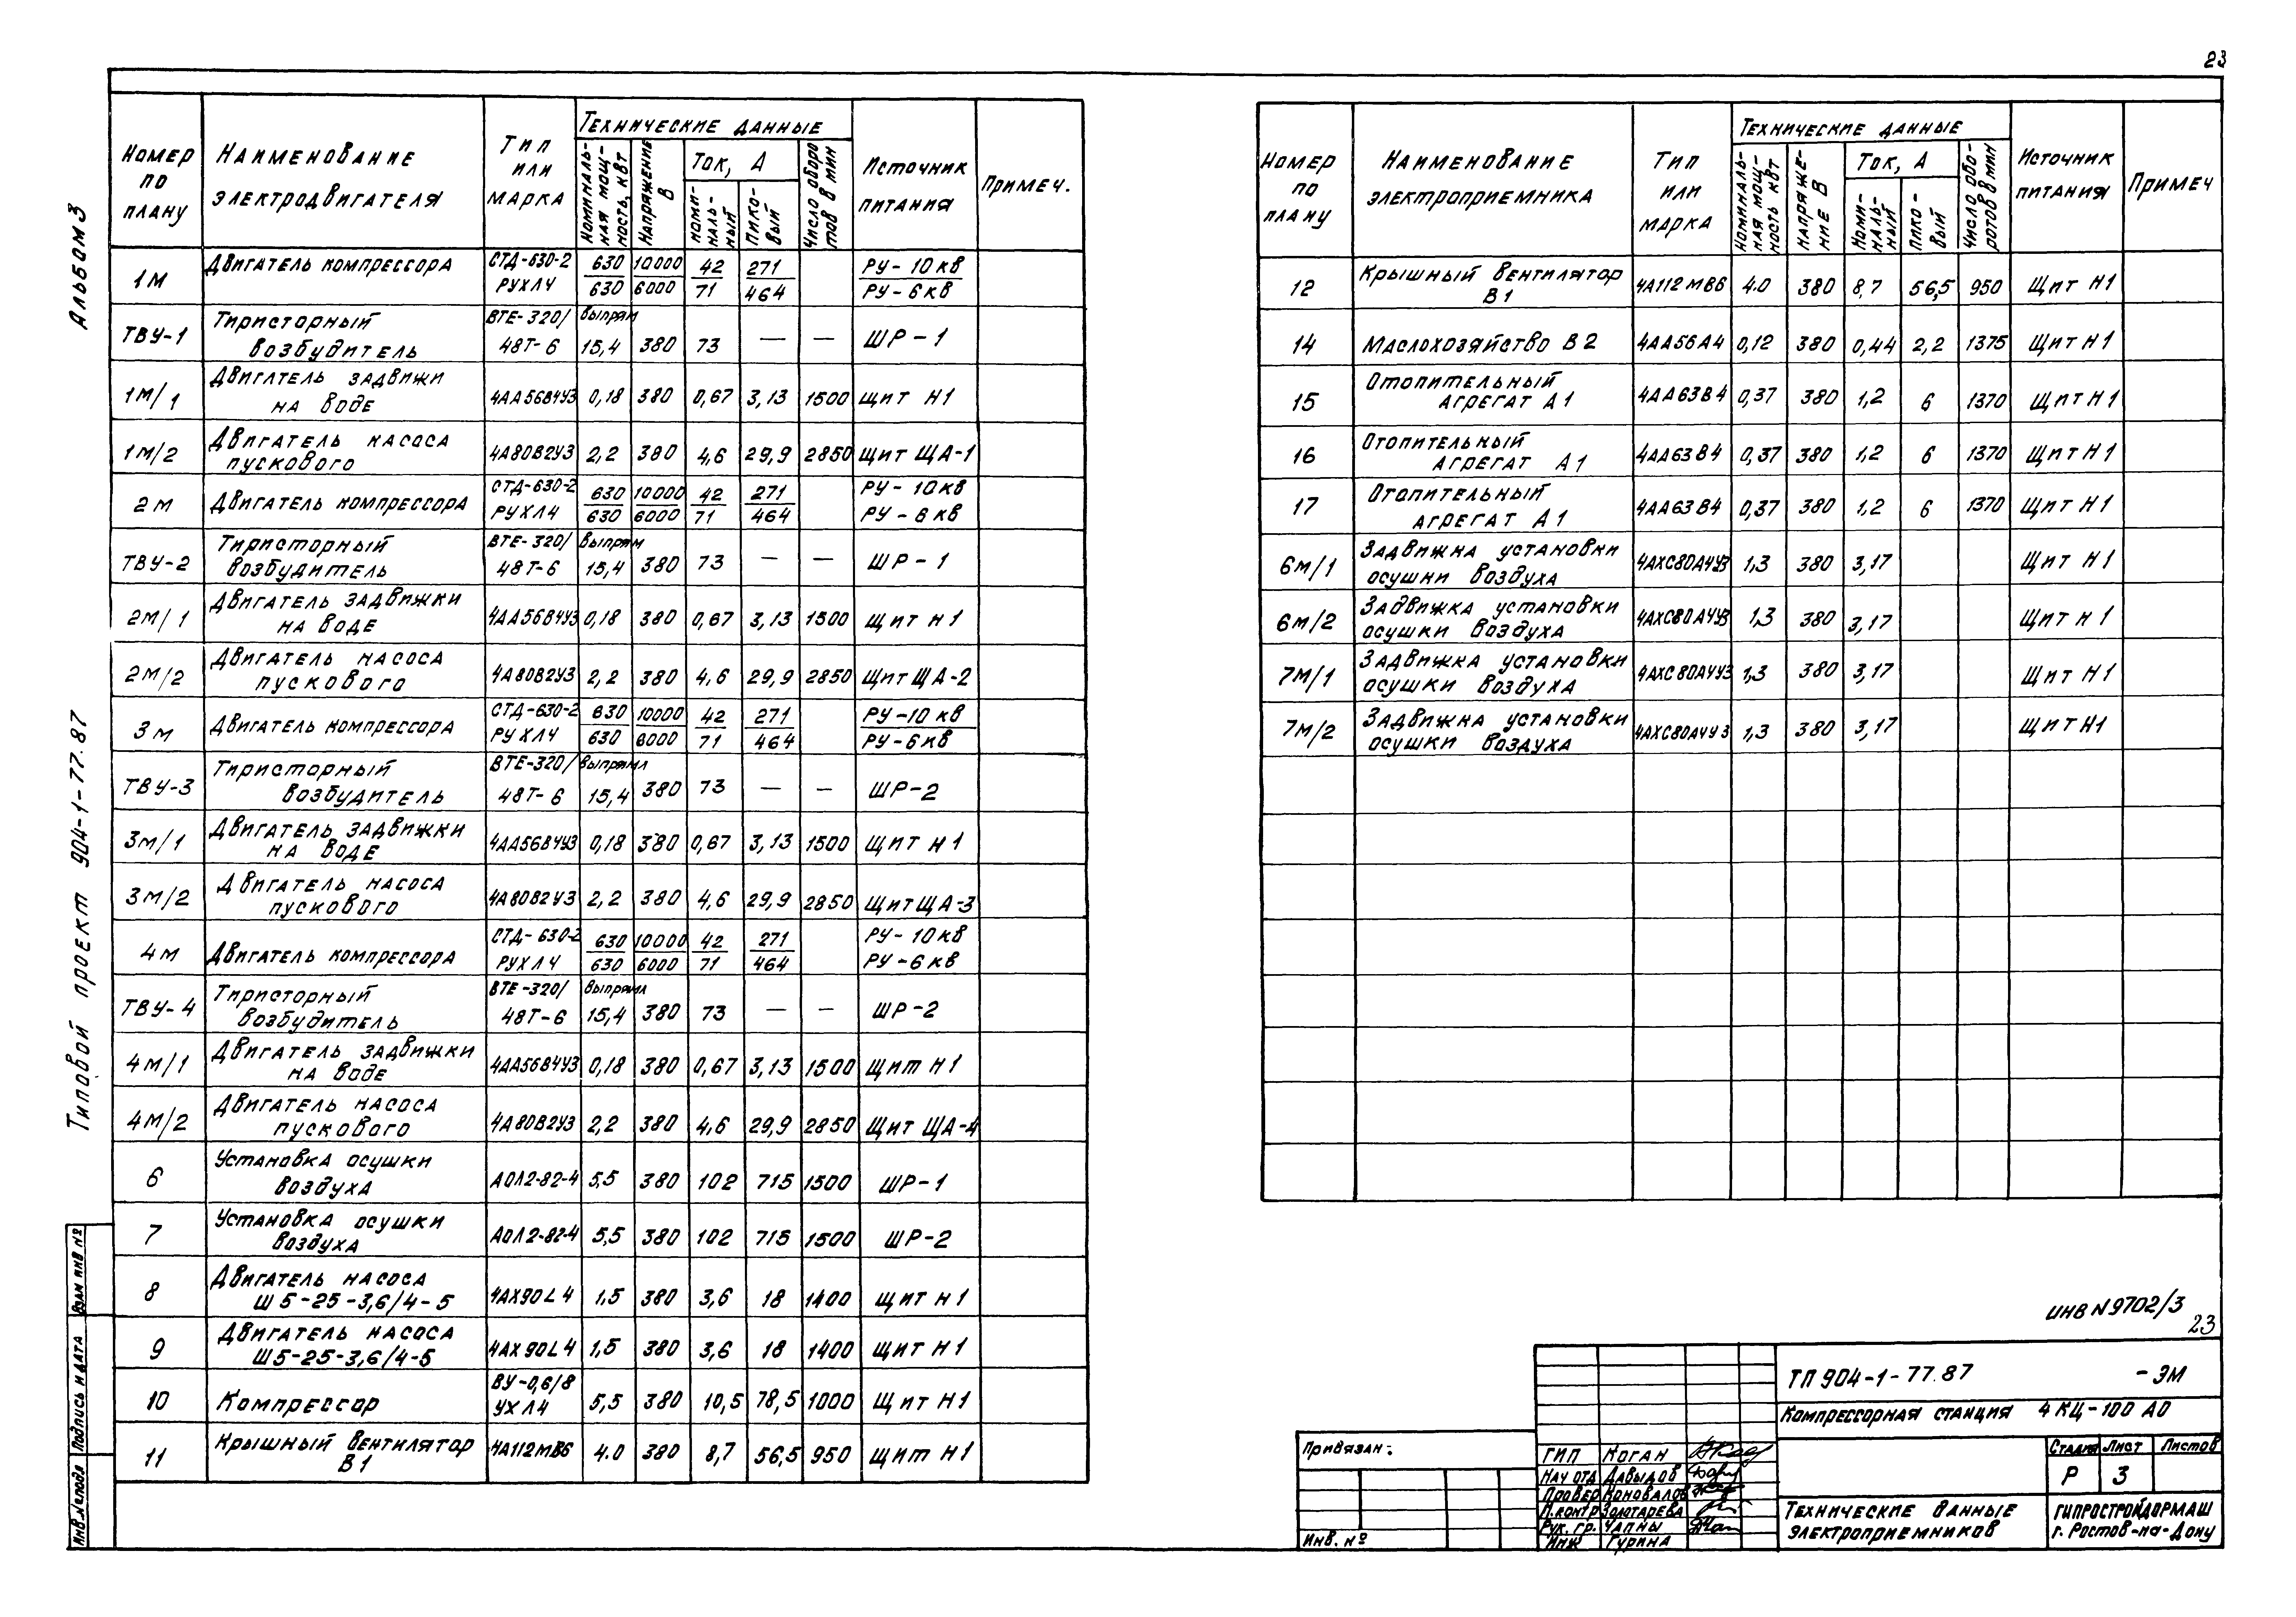 23
Альбом 3
Типовой проект 904-1-77.87
Номер по плану | Наименование электродвигателя | Тип или марка | Технические данные | Источник питания | Примеч.
Номинальная мощность, кВт | Напряжение В | Ток, А | Число оборотов в мин
Номинальный | Пиковый
1М | Двигатель компрессора | СТД-630-2 РУХЛ4 | 630/630 | 10000/6000 | 42/71 | 271/464 | РУ-10кВ/РУ-6кВ
ТВУ-1 | Тиристорный возбудитель | ВТЕ-320/48Т-6 | Выпрям 15,4 | 380 | 73 | — | — | ШР-1
1М/1 | Двигатель задвижи на воде | 4АА56В4У3 | 0,18 | 380 | 0,67 | 3,13 | 1500 | Щит Н1
1М/2 | Двигатель насоса пускового | 4А80В2У3 | 2,2 | 380 | 4,6 | 29,9 | 2850 | Щит ЩА-1
2М | Двигатель компрессора | СТД-630-2 РУХЛ4 | 630/630 | 10000/6000 | 42/71 | 271/464 | РУ-10кВ РУ-6кВ
ТВУ-2 | Тиристорный возбудитель | ВТЕ-320/48Т-6 | Выпрям 15,4 | 380 | 73 | — | — | ШР-1
2М/1 | Двигатель задвижки на воде | 4АА56В4У3 | 0,18 | 380 | 0,67 | 3,13 | 1500 | Щит Н1
2М/2 | Двигатель насоса пускового | 4А80В2У3 | 2,2 | 380 | 4,6 | 29,9 | 2850 | Щит ЩА-2
3М | Двигатель компрессора | СТД-630-2 РУХЛ4 | 630/630 | 10000/6000 | 42/71 | 271/464 | РУ-10кВ/РУ-6кВ
ТВУ-3 | Тиристорный возбудитель | ВТЕ-320/48Т-6 | Выпрямл 15,4 | 380 | 73 | — | — | ШР-2
3М/1 | Двигатель задвижки на воде | 4АА56В4У3 | 0,18 | 380 | 0,67 | 3,13 | 1500 | Щит Н1
3М/2 | Двигатель насоса пускового | 4А80В2У3 | 2,2 | 380 | 4,6 | 29,9 | 2850 | Щит ЩА-3
4М | Двигатель компрессора | СТД-630-2 РУХЛ4 | 630/630 | 10000/6000 | 42/71 | 271/464 | РУ-10кВ РУ-6кВ
ТВУ-4 | Тиристорный возбудитель | ВТЕ-320/48Т-6 | Выпрямл 15,4 | 380 | 73 | — | — | ШР-2
4М/1 | Двигатель задвижки на воде | 4АА56В4У3 | 0,18 | 380 | 0,67 | 3,13 | 1500 | Щит Н1
4М/2 | Двигатель насоса пускового | 4А80В2У3 | 2,2 | 380 | 4,6 | 29,9 | 2850 | Щит ЩА-4
6 | Установка осушки воздуха | АОЛ2-82-4 | 5,5 | 380 | 102 | 715 | 1500 | ШР-1
7 | Установка осушки воздуха | АОЛ2-82-4 | 5,5 | 380 | 102 | 715 | 1500 | ШР-2
8 | Двигатель насоса Ш5-25-3,6/4-5 | 4АХ90L4 | 1,5 | 380 | 3,6 | 18 | 1400 | Щит Н1
9 | Двигатель насоса Ш5-25-3,6/4-5 | 4АХ90L4 | 1,5 | 380 | 3,6 | 18 | 1400 | Щит Н1
10 | Компрессор | ВУ-0,6/8 УХЛ4 | 5,5 | 380 | 10,5 | 78,5 | 1000 | Щит Н1
11 | Крышный вентилятор В1 | 4А112МВ6 | 4.0 | 380 | 8,7 | 56,5 | 950 | Щит Н1
Номер по плану | Наименование электроприемника | Тип или марка | Технические данные | Источник питания | Примеч
Номинальная мощность кВт | Напряжение В | Ток, А | Число оборотов в мин
Номинальный | Пиковый
12 | Крышный вентилятор В1 | 4А112МВ6 | 4.0 | 380 | 8,7 | 56,5 | 950 | Щит Н1
14 | Маслохозяйство В2 | 4АА56А4 | 0,12 | 380 | 0,44 | 2,2 | 1375 | Щит Н1
15 | Отопительный агрегат А1 | 4АА63В4 | 0,37 | 380 | 1,2 | 6 | 1370 | Щит Н1
16 | Отопительный агрегат А1 | 4АА63В4 | 0,37 | 380 | 1,2 | 6 | 1370 | Щит Н1
17 | Отопительный агрегат А1 | 4АА63В4 | 0,37 | 380 | 1,2 | 6 | 1370 | Щит Н1
6М/1 | Задвижка установки осушки воздуха | 4АХС80А4У3 | 1,3 | 380 | 3,17 | Щит Н1
6М/2 | Задвижка установки осушки воздуха | 4АХС80А4У3 | 1,3 | 380 | 3,17 | Щит Н1
7М/1 | Задвижка установки осушки воздуха | 4АХС80А4У3 | 1,3 | 380 | 3,17 | Щит Н1
7М/2 | Задвижка установки осушки воздуха | 4АХС80А4У3 | 1,3 | 380 | 3,17 | Щит Н1
Инв N 9702/3
23
ТП 904-1-77.87 -ЭМ
Компрессорная станция 4КЦ-100 АО
Стадия Лист Листов
Р 3
Технические данные электроприемников
ГИПРОСТРОЙДОРМАШ
г. Ростов-на-Дону
Привязан:
Инв. №
ГИП Коган
Нач отд Давыдов
Провер Коновалов
Н.контр Золотарева
Рук. гр. Чапны
Инж Гурина
Взам инв №
Подпись и дата
Инв.№ подл